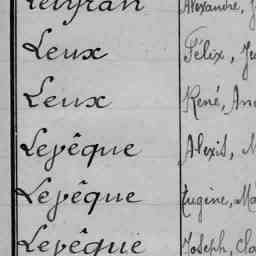 Leux Félix, Je
Leux René, An
Levêque Alexis, M
Levêque Eugène, Ma
Levêque Joseph, Cla